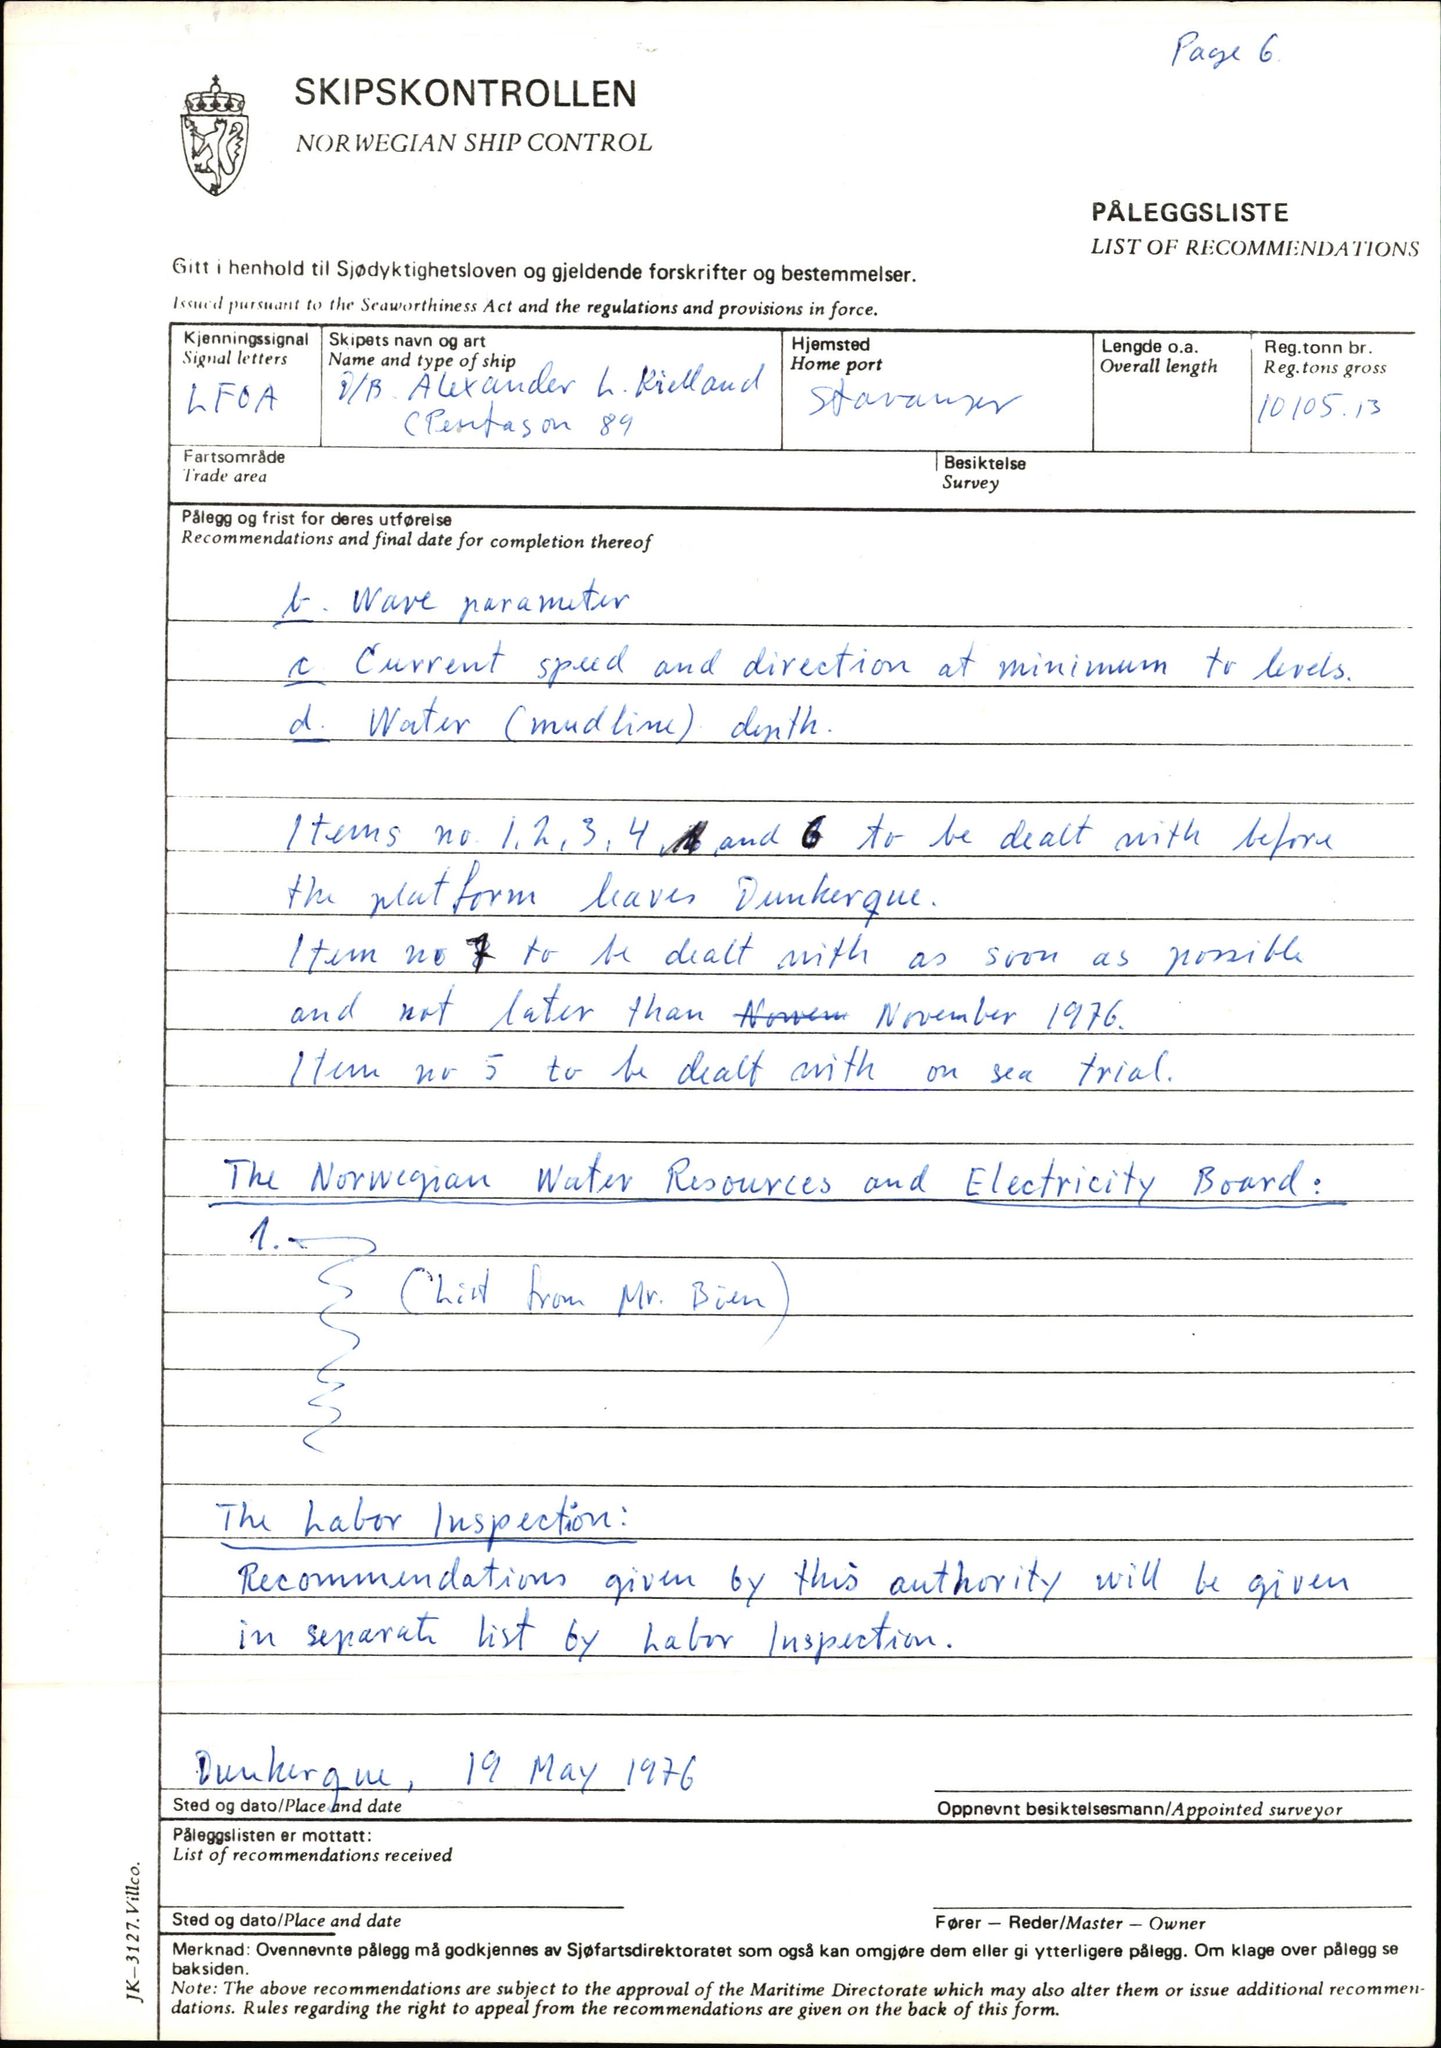 Page 6
SKIPSKONTROLLEN
NORWEGIAN SHIP CONTROL
PÅLEGGSLISTE
LIST OF RECOMMENDATIONS
Gitt i henhold til Sjødyktighetsloven og gjeldende forskrifter og bestemmelser.
Issued pursuant to the Seaworthiness Act and the regulations and provisions in force.
Kjenningssignal
Signal letters
LFOA
Skipets navn og art
Name and type of ship
D/B. Alexander L. Kielland
(Pentagon 89
Hjemsted
Home port
Stavanger
Lengde o.a.
Overall length
Reg.tonn br.
Reg.tons gross
10105.13
Fartsområde
Trade area
Besiktelse
Survey
Pålegg og frist for deres utførelse
Recommendations and final date for completion thereof
b. Wave parameter
c. Current speed and direction at minimum to levels.
d. Water (mudline) depth.
Items no. 1, 2, 3, 4, and 6 to be dealt with before
the platform leaves Dunkerque.
Item no 7 to be dealt with as soon as possible
and not later than Novem November 1976.
Item no 5 to be dealt with on sea trial.
The Norwegian Water Resources and Electricity Board:
1.
(List from Mr. Bøen)
The Labor Inspection:
Recommendations given by this authority will be given
in separate list by Labor Inspection.
Dunkerque, 19 May 1976
Sted og dato/Place and date
Oppnevnt besiktelsesmann/Appointed surveyor
Påleggslisten er mottatt:
List of recommendations received
Sted og dato/Place and date
Fører — Reder/Master — Owner
Merknad: Ovennevnte pålegg må godkjennes av Sjøfartsdirektoratet som også kan omgjøre dem eller gi ytterligere pålegg. Om klage over pålegg se
baksiden.
Note: The above recommendations are subject to the approval of the Maritime Directorate which may also alter them or issue additional recommen-
dations. Rules regarding the right to appeal from the recommendations are given on the back of this form.
JK—3127. Villco.